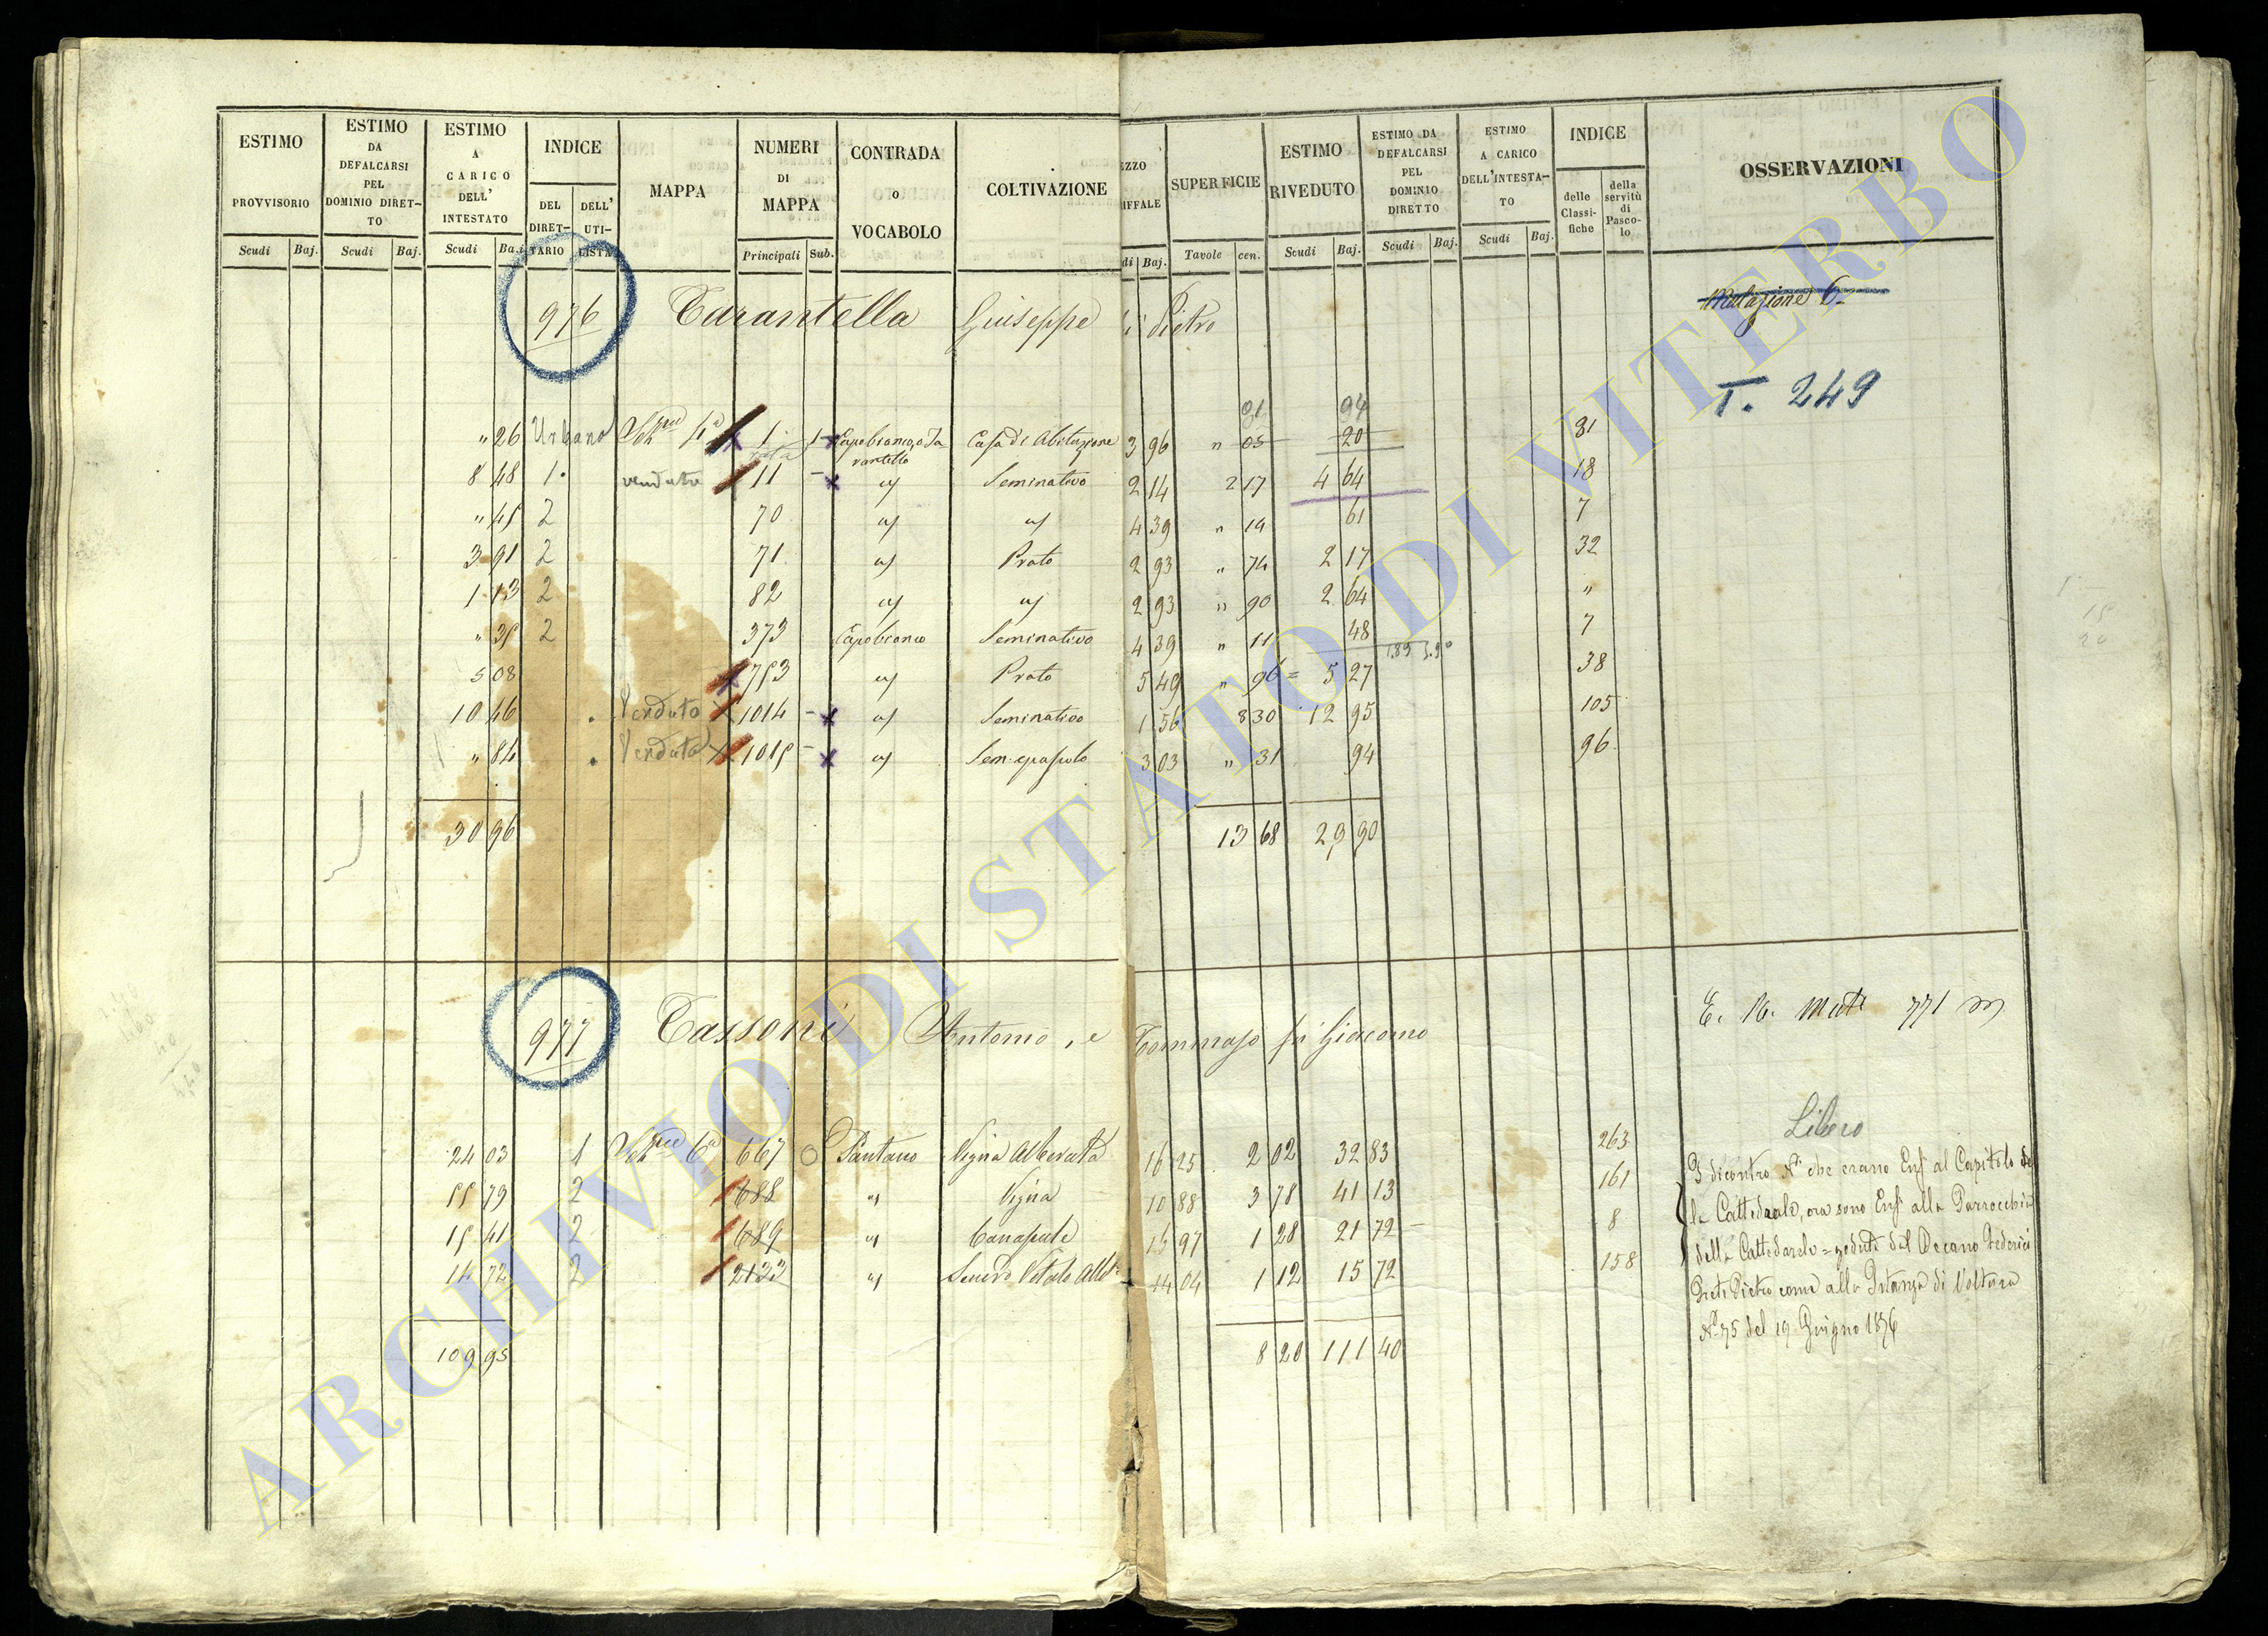 ESTIMO PROVVISORIO Scudi Baj.
ESTIMO DA DEFALCARSI PEL DOMINIO DIRET-TO Scudi Baj.
ESTIMO A CARICO DELL' INTESTATO Scudi Baj.
INDICE DEL DIRET-TARIO DELL' UTI-LISTA
MAPPA
NUMERI DI MAPPA Principali Sub.
CONTRADA o VOCABOLO
COLTIVAZIONE
EZZO IFFALE di Baj.
SUPERFICIE Tavole cen.
ESTIMO RIVEDUTO Scudi Baj.
ESTIMO DA DEFALCARSI PEL DOMINIO DIRETTO Scudi Baj.
ESTIMO A CARICO DELL'INTESTA-TO Scudi Baj.
INDICE delle Classi-fiche della servitù di Pasco-lo
OSSERVAZIONI
976 Tarantella Giuseppe di Pietro
Mutazione 6
T. 249
91 94
" 26 Urbano 4a 1 1 Capobianco, o Ta- Casa di Abitazione 3 96 " 05 20 81
rantella
8 48 1 venduto 11 " Seminativo 2 14 2 17 4 64 18
" 45 2 70 " " 4 39 " 14 61 7
3 91 2 71 " Prato 2 93 " 74 2 17 32
1 13 2 82 " " 2 93 " 90 2 64 "
" 35 2 373 Capobianco Seminativo 4 39 " 11 48 7
5 08 753 " Prato 5 49 " 96 = 5 27 38
10 46 Venduto 1014 " Seminativo 1 56 8 30 12 95 105
" 84 Venduto 1015 " Sem. e pascolo 3 03 " 31 94 96
30 96 13 68 29 90
977 Tassoni Antonio, e Tommaso fu Giacomo
E. R. Mut 771
Libero
24 03 1 6a 667 Pantano Vigna Alberata 16 25 2 02 32 83 263
55 79 2 688 " Vigna 10 88 3 78 41 13 161
15 41 2 689 " Canapule 15 97 1 28 21 72 8
14 72 2 2133 " 14 04 1 12 15 72 158
109 95 8 20 111 40
I dicontro Ni che erano Enfi al Capitolo del
la Cattedrale, ora sono Enfi alla Parrocchia
della Cattedrale = ceduti dal Decano Federici
Pietro come alla Istanza di Voltura
No 75 del 19 Giugno 1876
ARCHIVIO DI STATO DI VITERBO